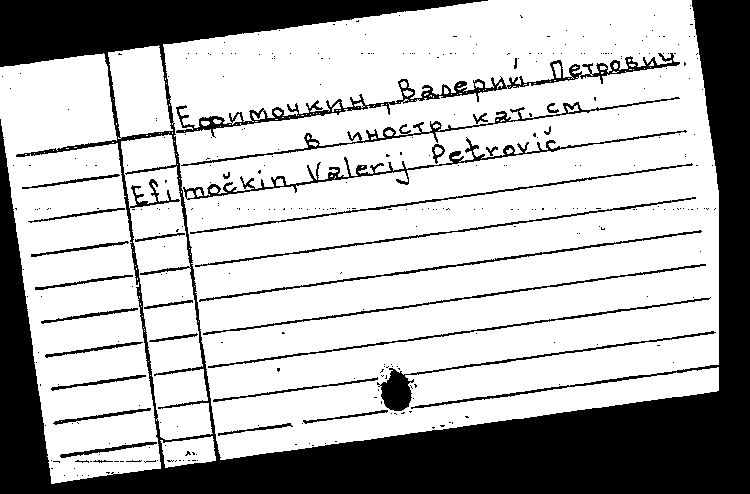 Ефимочкин, Валерий Петрович.
в иностр. кат. см.:
Efimočkin, Valerij Petrovič